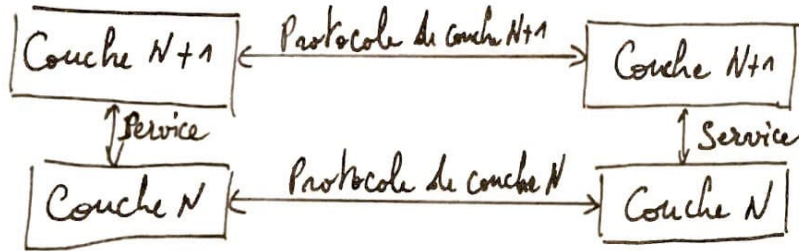 Couche N+1 Protocole de couche N+1 Couche N+1
Service Service
Couche N Protocole de couche N Couche N